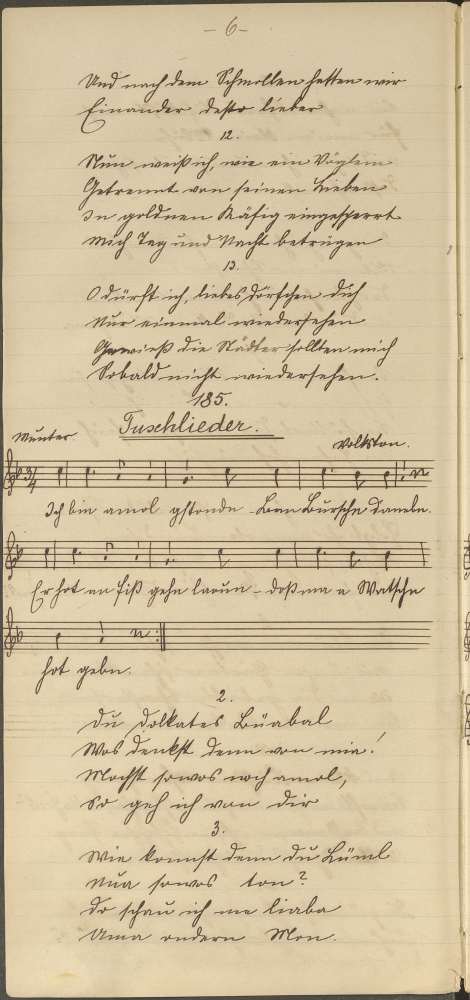 - 6 -
Und nach dem Schmollen hatten wir
Einander desto lieber
12.
Nun weiß ich, wie ein Vöglein
Getrennt von seinen Lieben
In goldnen Käfig eingesperrt
Mich Tag und Nacht betrügen
13.
O dürft ich, liebes Dörfchen dich
Nur einmal wiedersehen
Gewieß die Städter sollten mich
Sobald nicht wiedersehen.
185.
Tuschlieder.
Munter Volkston.
3/4
Ich bin amol gstonde - Ban Bursche
Er hot an gehn - doß ma a Watschn
hot gebn.
2.
Du dolkates Büabal
Wos denkst denn von mia!
Mochst sowos noch amol,
So geh ich von dir
3.
Wie konnst denn du Lüml
Nua sowos ton?
Do schau ich me liaba
Uma ondern Mon.